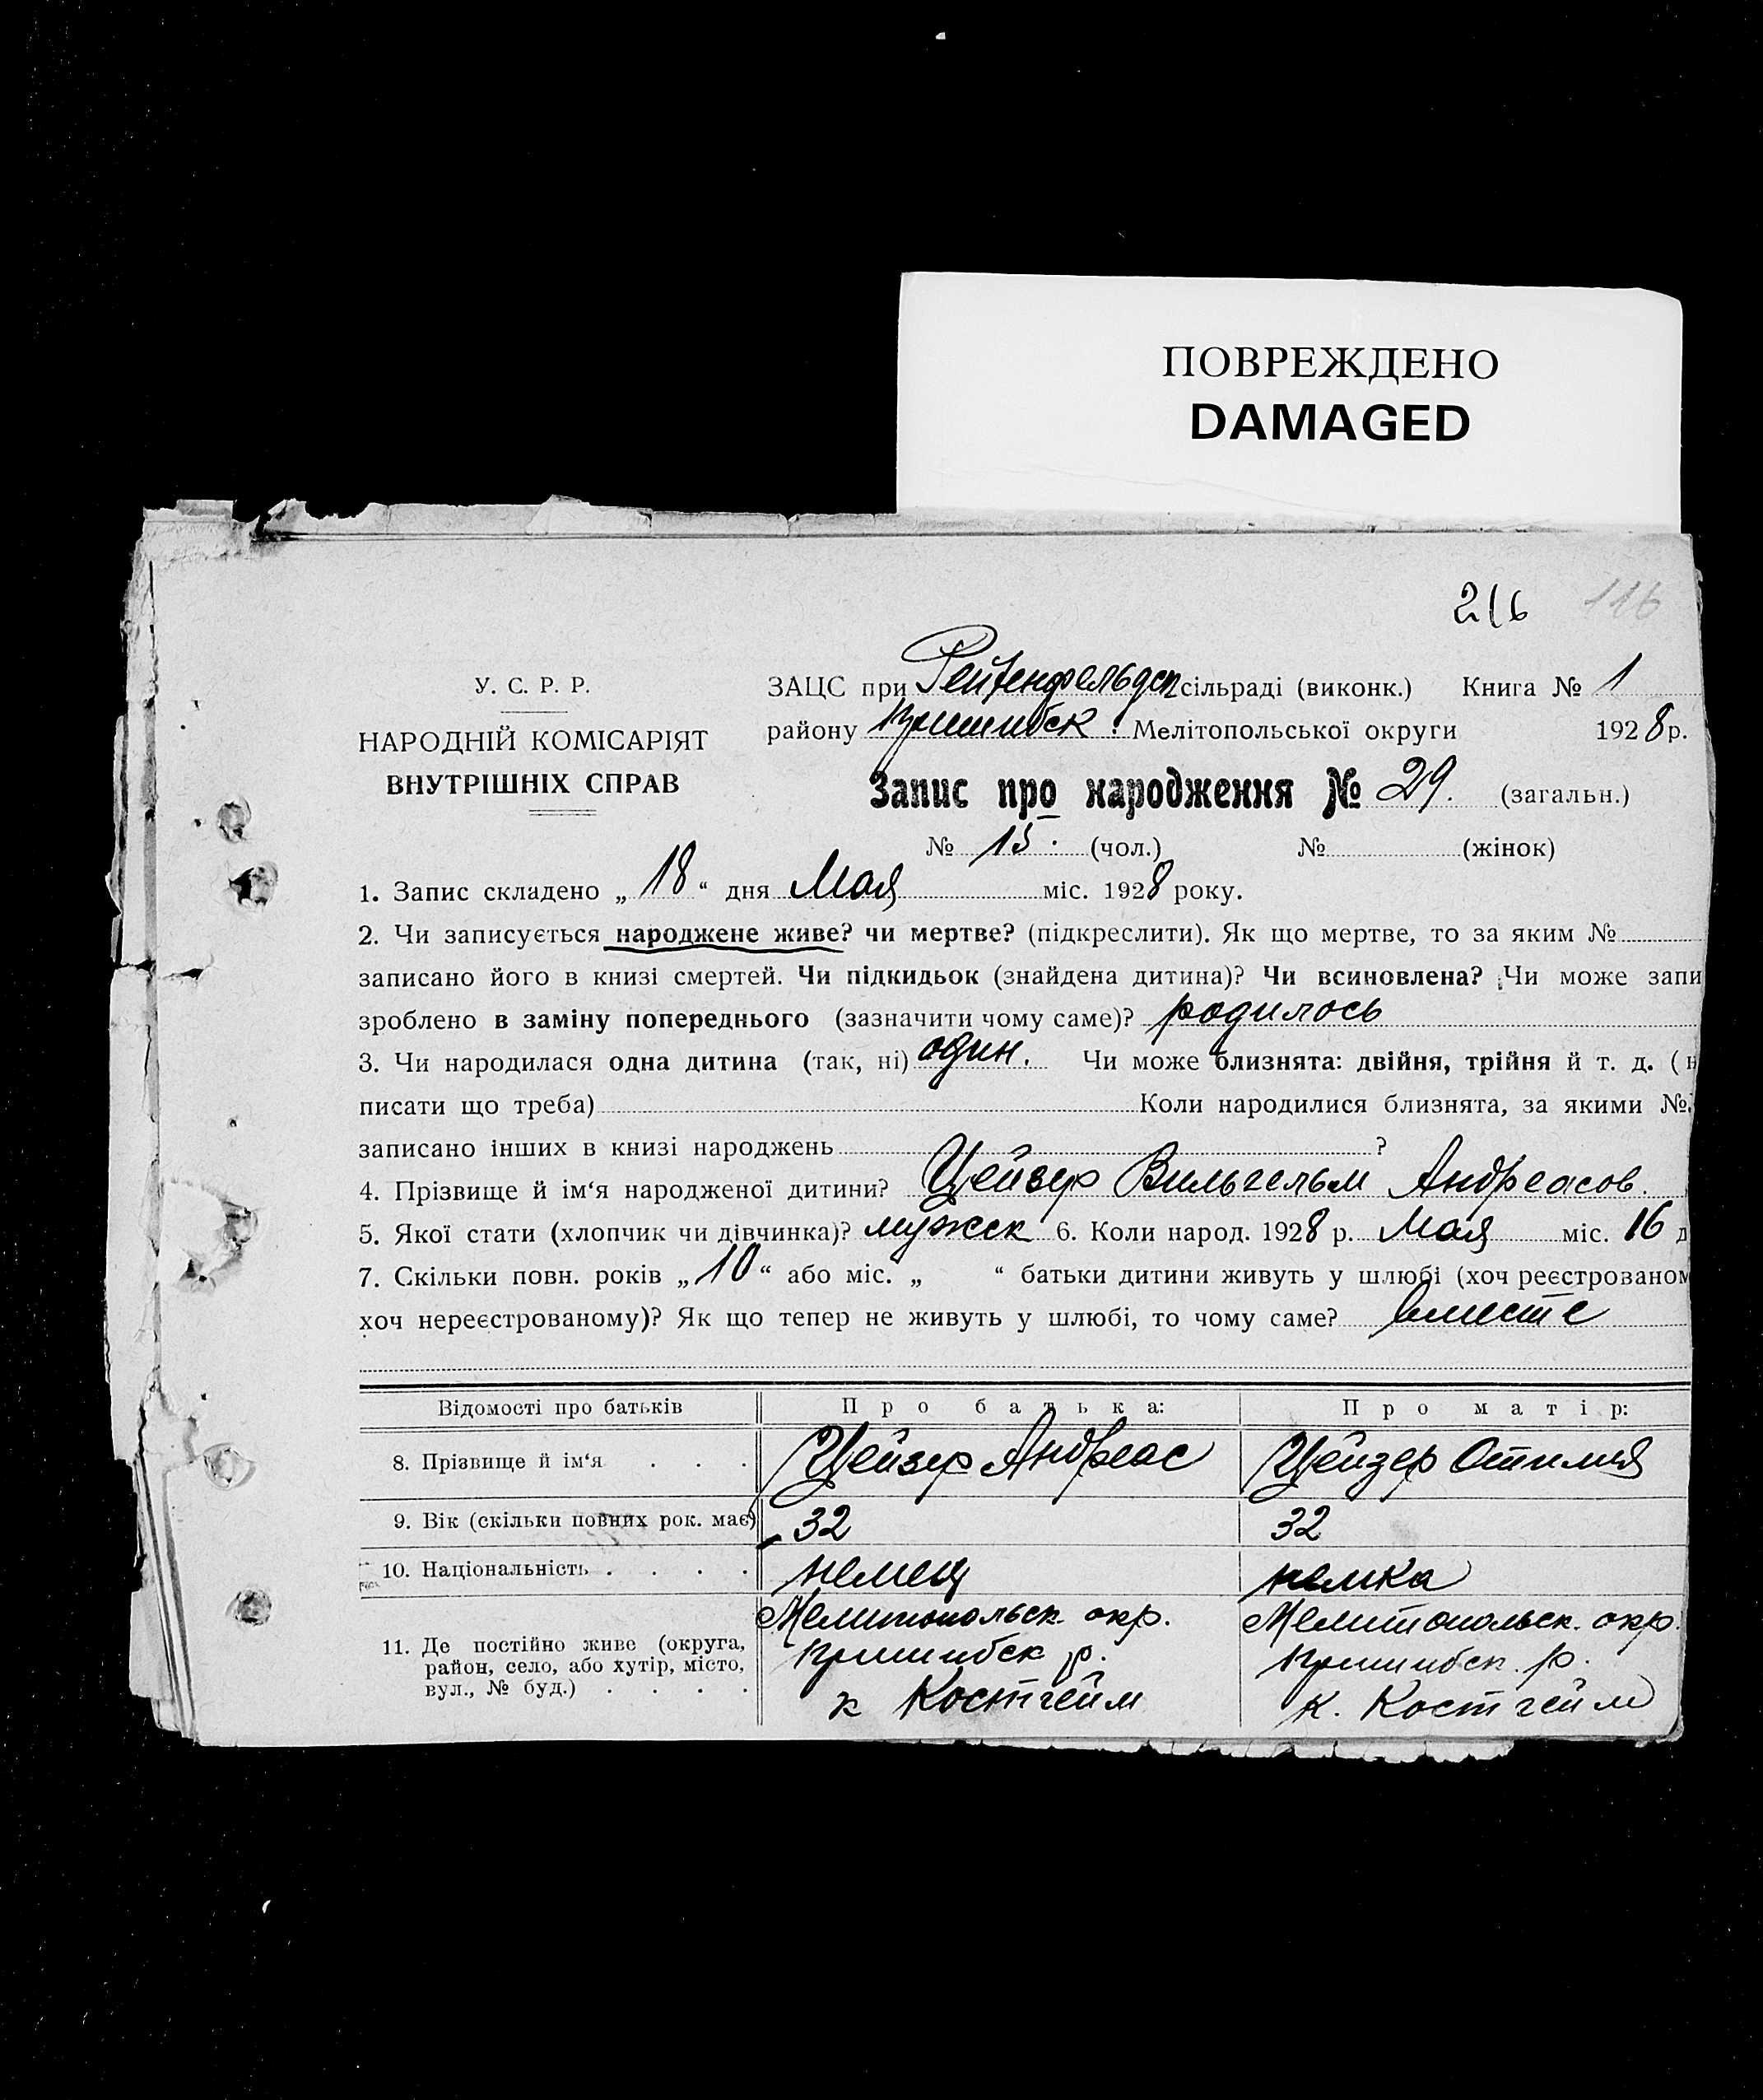 ПОВРЕЖДЕНО
DAMAGED
216 116
У. С. Р. Р.
НАРОДНІЙ КОМІСАРІЯТ
ВНУТРІШНІХ СПРАВ
ЗАЦС при Рейхенфельдск сільраді (виконк.) Книга № 1
району Пришибск. Мелітопольської округи 1928 р.
Запис про народження № 29. (загальн.)
№ 15. (чол.) № (жінок)
1. Запис складено „ 18 “ дня Мая міс. 1928 року.
2. Чи записується народжене живе? чи мертве? (підкреслити). Як що мертве, то за яким №
записано його в книзі смертей. Чи підкидьок (знайдена дитина)? Чи всиновлена? Чи може запи
зроблено в заміну попереднього (зазначити чому саме)? родилось
3. Чи народилася одна дитина (так, ні) один. Чи може близнята: двійня, трійня й т. д. ( н
писати що треба) Коли народилися близнята, за якими №
записано інших в книзі народжень ?
4. Прізвище й ім‘я народженої дитини? Цейзер Вильгельм Андреасов.
5. Якої стати (хлопчик чи дівчинка)? мужск 6. Коли народ. 1928 р. Мая міс. 16 д
7. Скільки повн. років „ 10 “ або міс. „ “ батьки дитини живуть у шлюбі (хоч реєстрованом
хоч нереєстрованому)? Як що тепер не живуть у шлюбі, то чому саме? вместе
Відомості про батьків Про батька: Про матір:
8. Прізвище й ім‘я . . . Цейзер Андреас Цейзер Отилия
9. Вік (скільки повних рок. має) 32 32
10. Національність . . . . немец немка
11. Де постійно живе (округа, Мелитопольск. окр. Мелитопольск. окр.
район, село, або хутір, місто, Пришибск р. Пришибск. р.
вул., № буд.) . . . . к Костгейм к. Костгейм